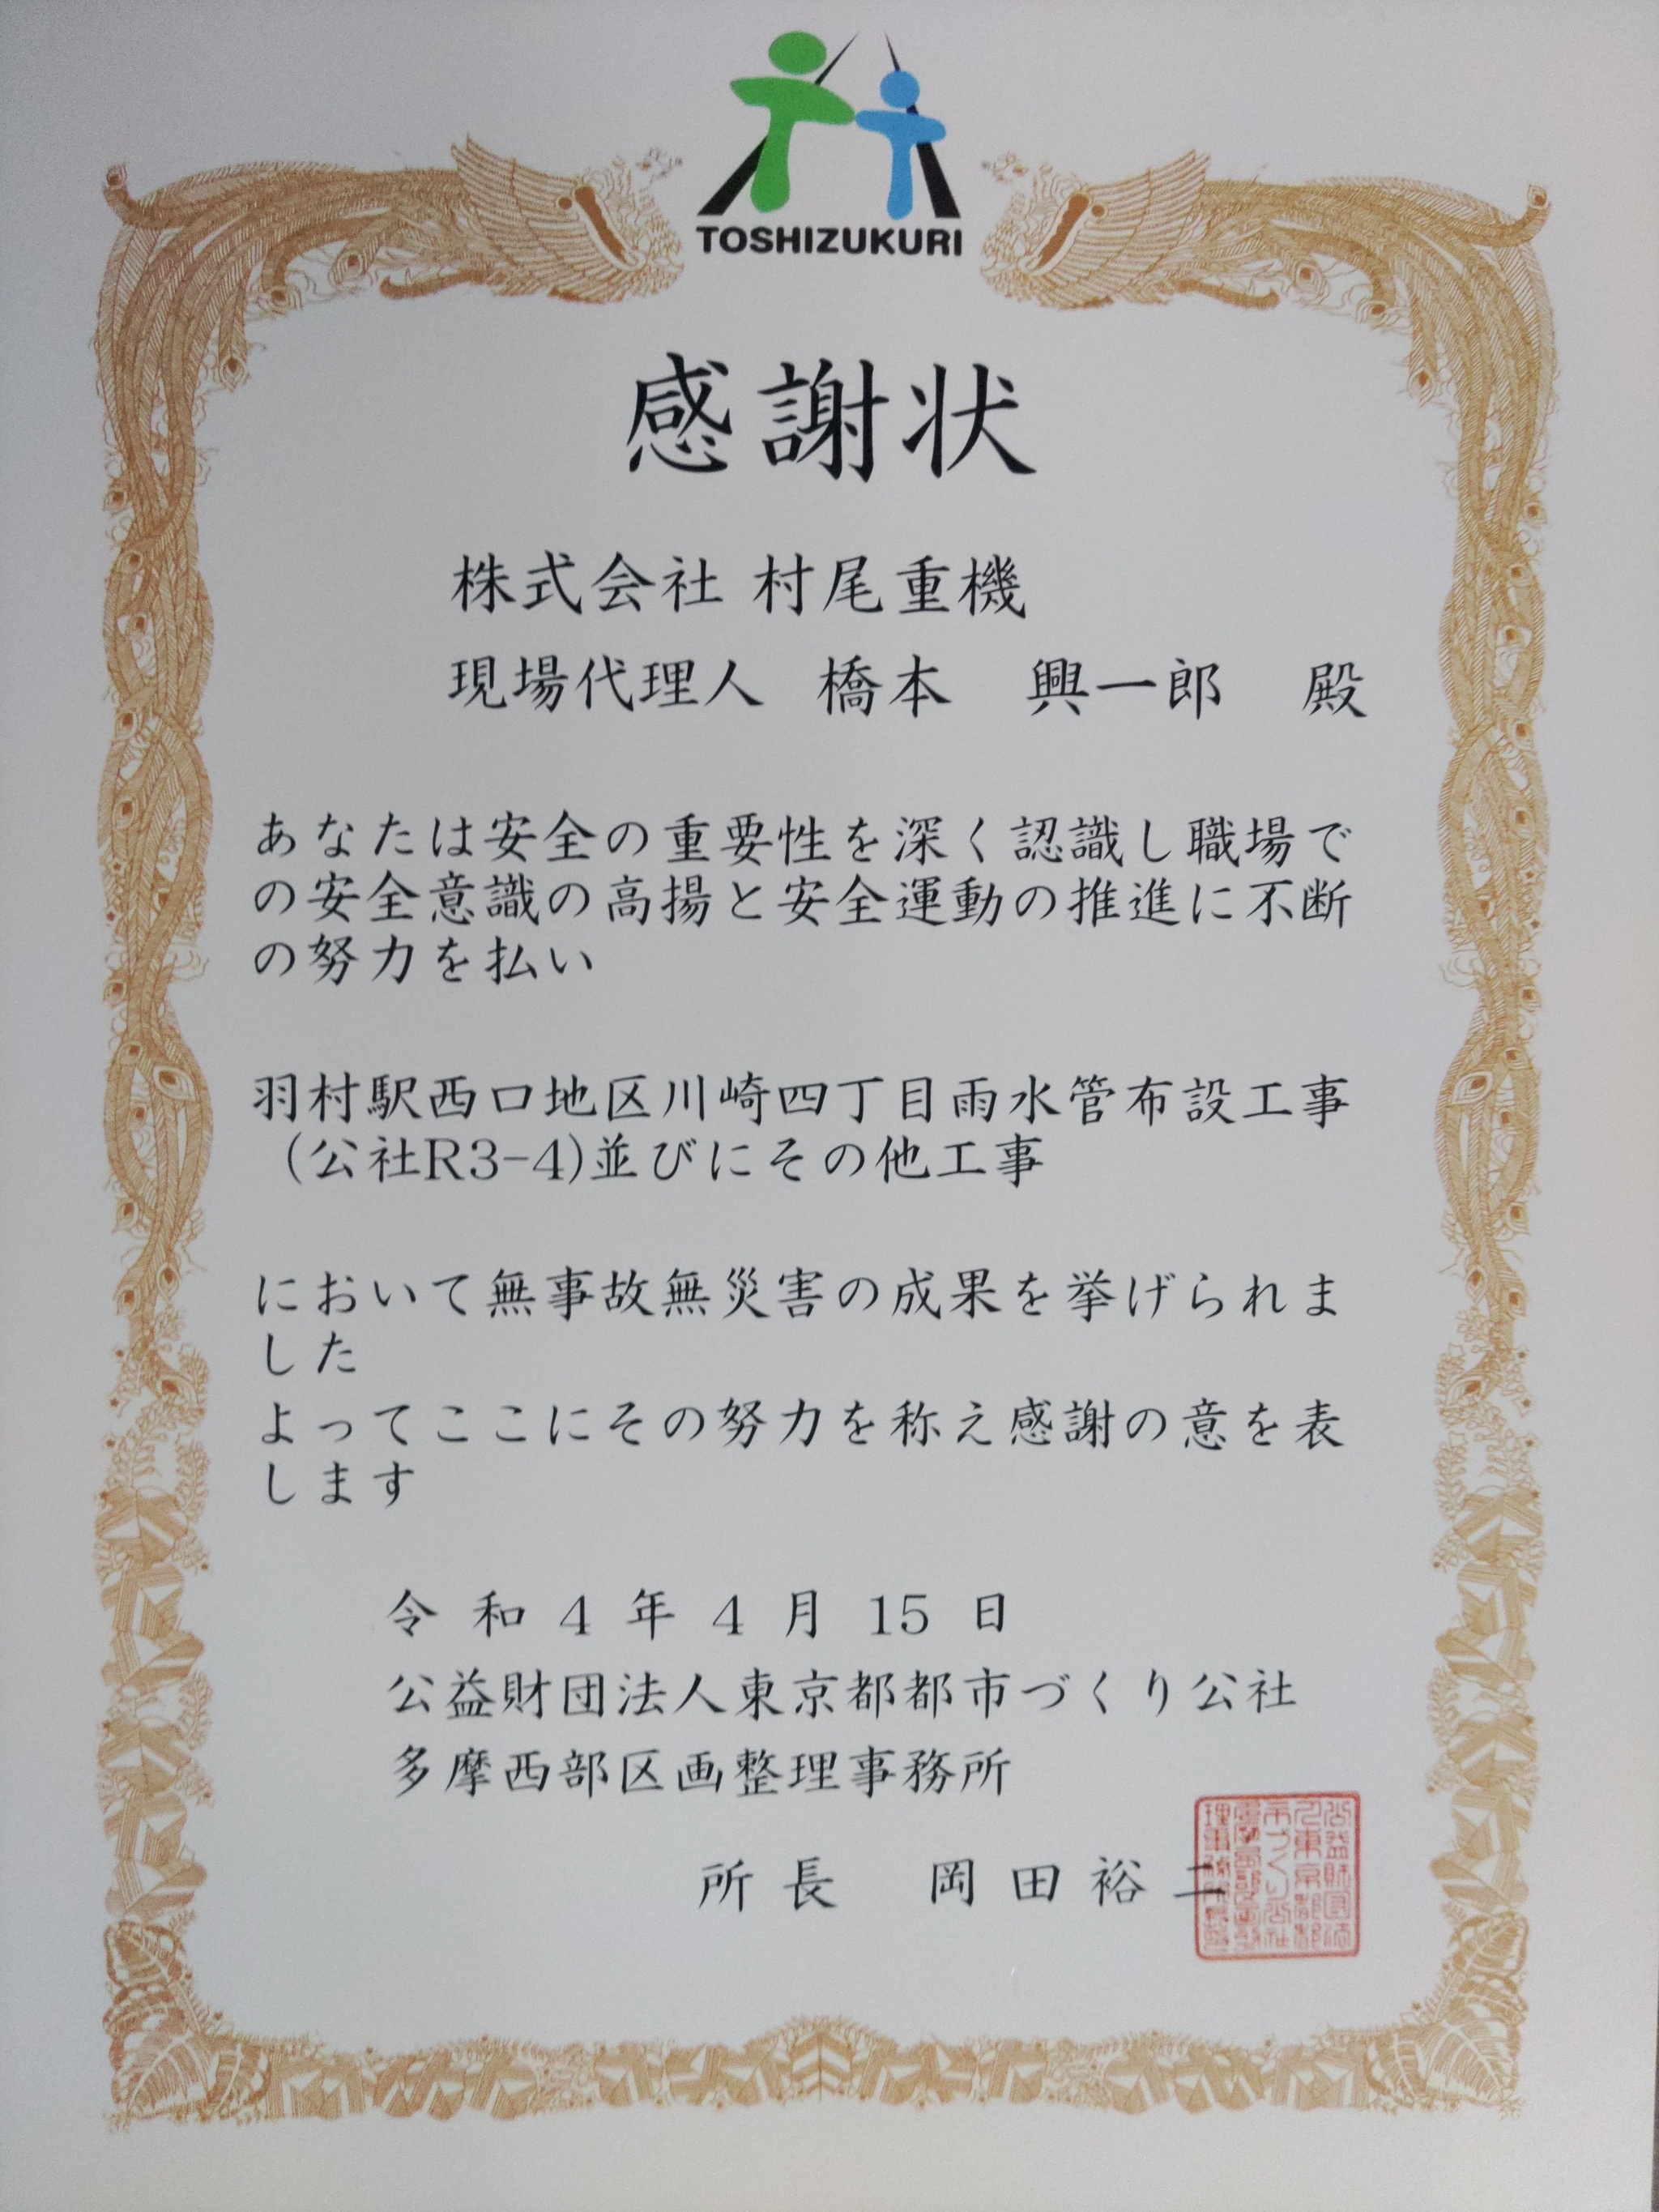 TOSHIZUKURI
感謝状
株式会社 村尾重機
現場代理人 橋本 興一郎 殿
あなたは安全の重要性を深く認識し職場で
の安全意識の高揚と安全運動の推進に不断
の努力を払い
羽村駅西口地区川崎四丁目雨水管布設工事
(公社R3-4)並びにその他工事
において無事故無災害の成果を挙げられま
した
よってここにその努力を称え感謝の意を表
します
令和4年4月15日
公益財団法人東京都都市づくり公社
多摩西部区画整理事務所
所長 岡田裕二